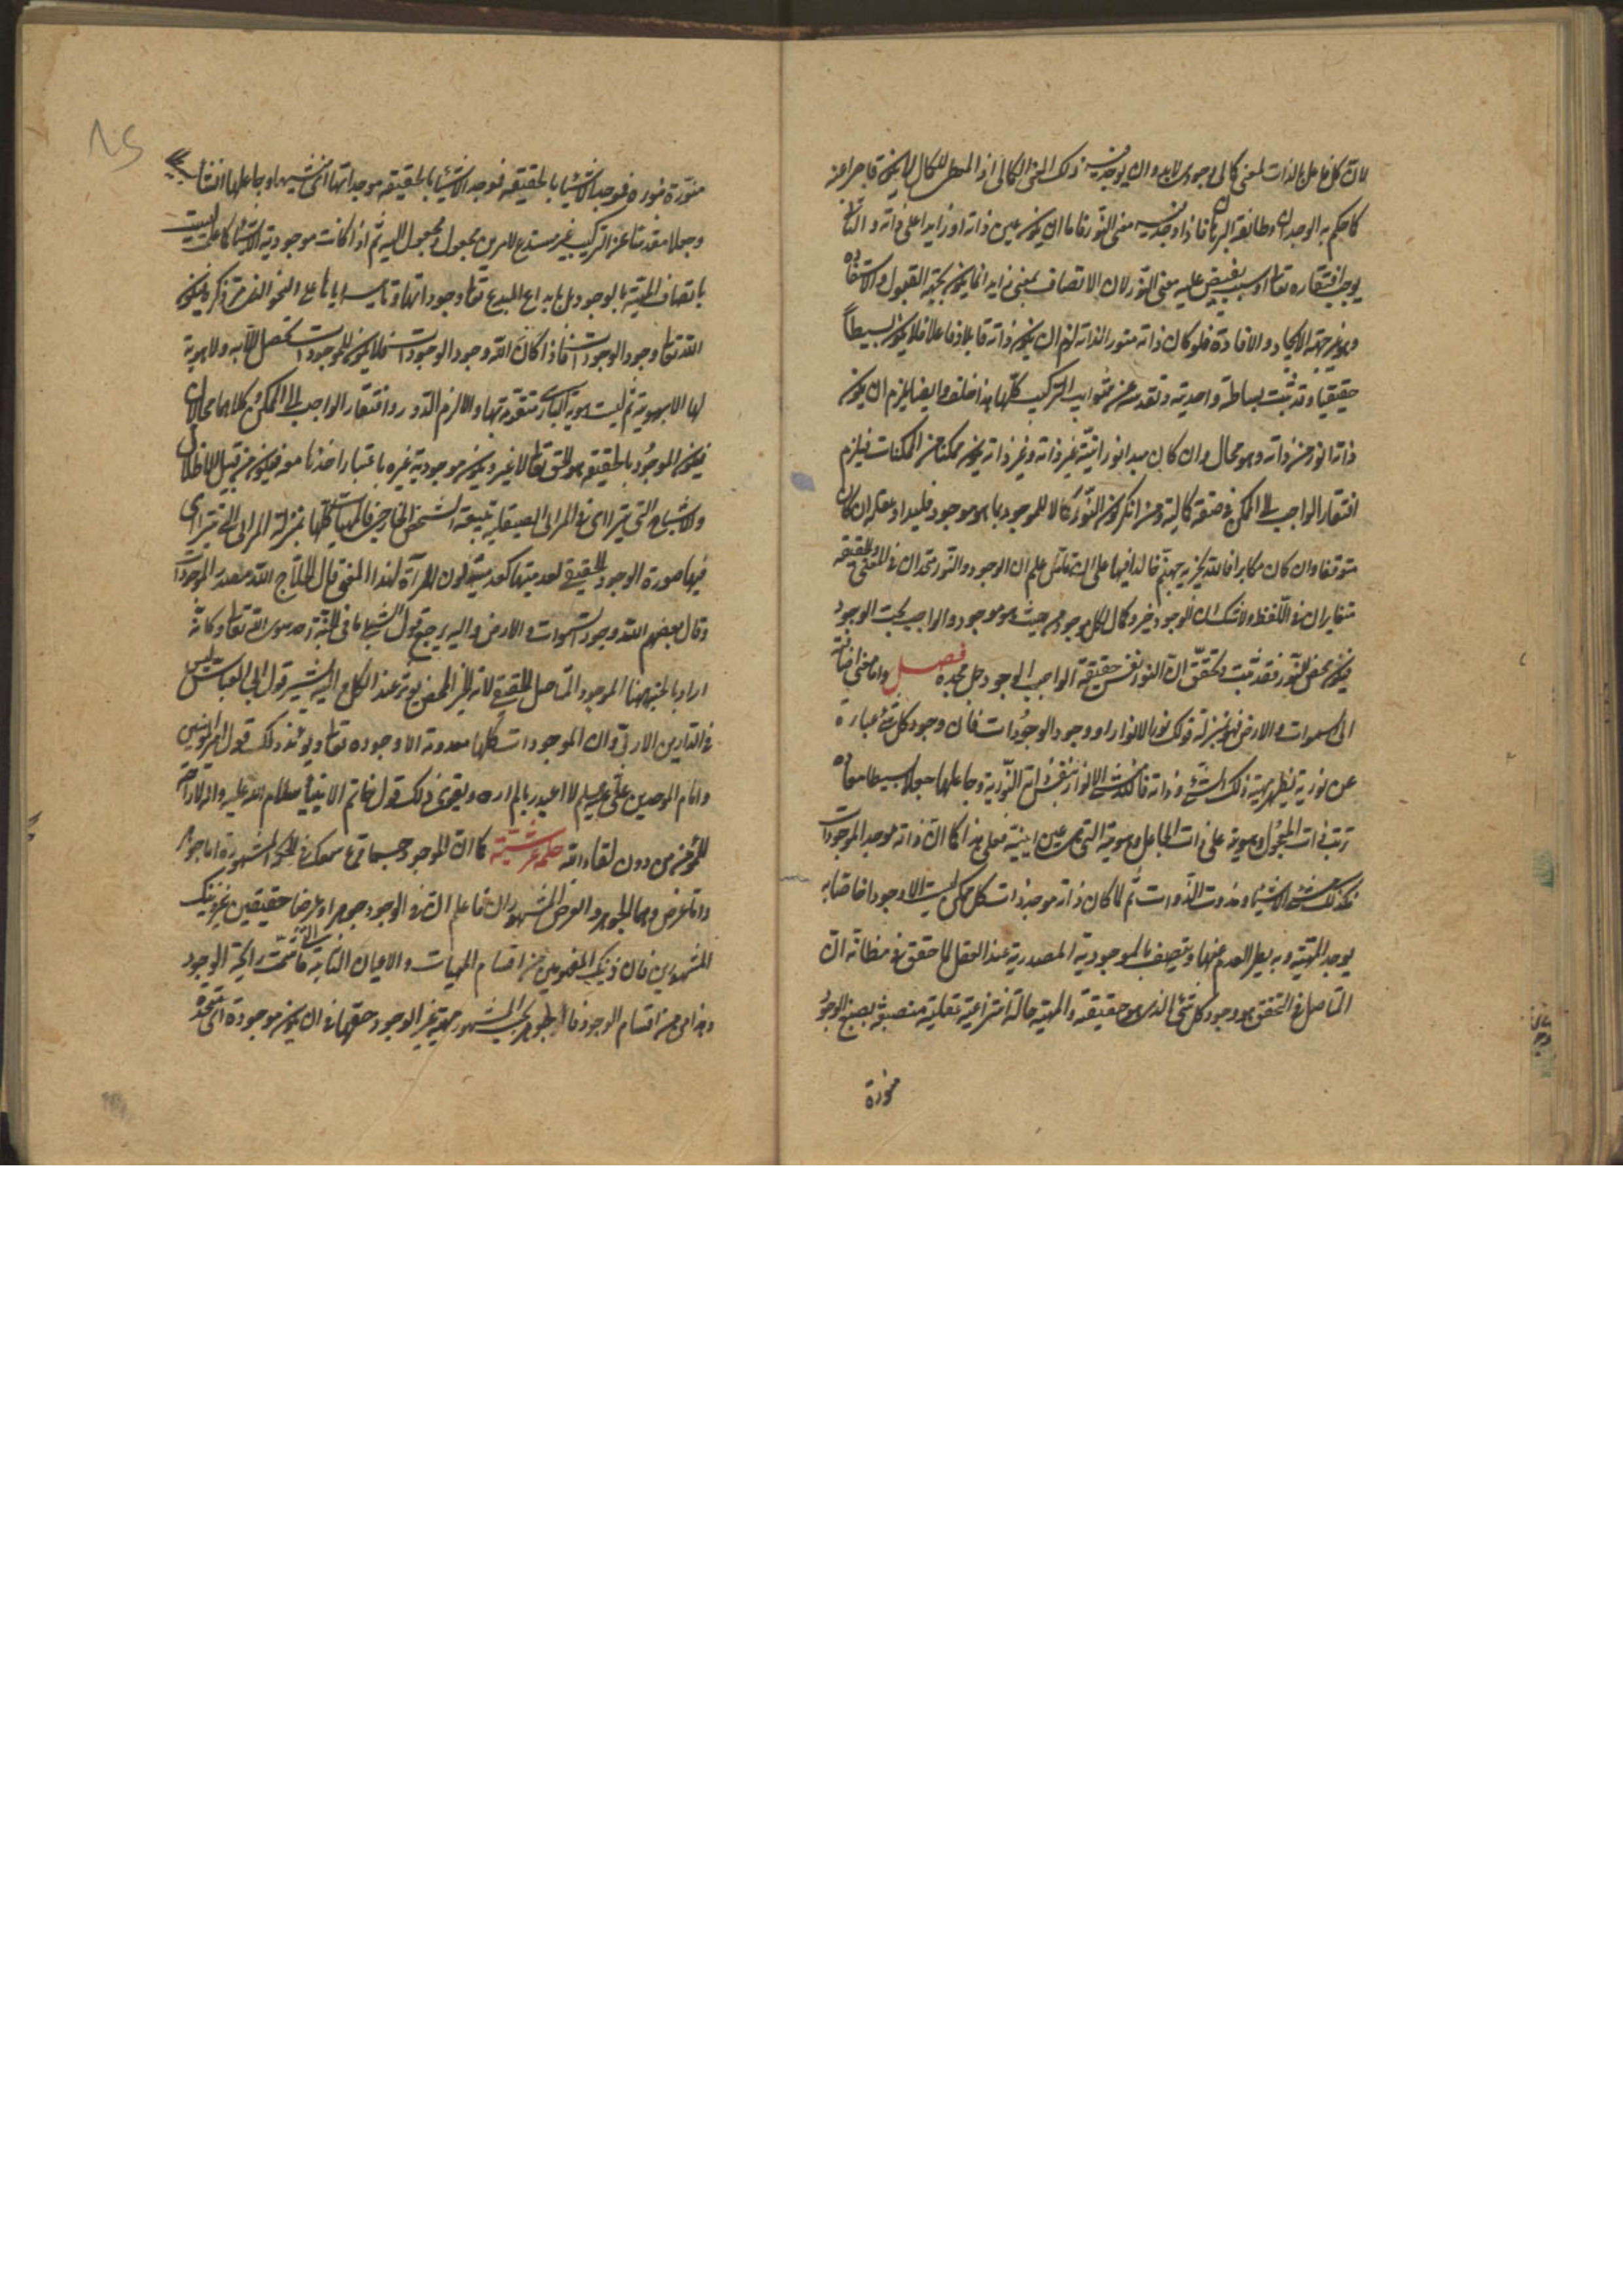 لان كل فاعل بالذات لمعنى كمالى وجودى لابد وان يوجد فيه ذلك المعنى الكمالى اذ المعطى للكمال لا يكون قاصرا عنه
كما حكم به الوجدان وطابقه البرهان فاذا وجد فيه معنى النور فاما ان يكون عين ذاته او زايدا على ذاته والثانى
يوجب افتقاره تعالى الى سبب يفيض عليه معنى النور لان الاتصاف بمعنى زايد انما يكون بجهة القبول والاستفادة
وهو غير جهة الايجاد والافادة فلو كان ذاته منور الذاته لزم ان يكون ذاته قابلا وفاعلا فلا يكون بسيطاً
حقيقيا وقد ثبت بساطته واحديته وتقدسه عن شوايب التركيب كلها هذا خلف وايضا يلزم ان يكون
ذاته انور من ذاته وهو محال وان كان مبدا نورانيته غير ذاته وغير ذاته يكون ممكنا من الممكنات فيلزم
افتقار الواجب الى الممكن فى صفة كمالية ومن انكر كون النور كمالا للموجود بما هو موجود فليداو عقله ان كان
متوقفا وان كان مكابرا فالله يجزيه جهنم خالدا فيها على ان من تامل علم ان الوجود والنور متحدان فى المعنى والحقيقه
متغايران فى اللفظ ولا شك ان الوجود خير وكمال لكل موجود من حيث هو موجود والواجب بحت الوجود
فيكون محض النور فقد ثبت وتحقق ان النور نفس حقيقة الواجب الوجود جل مجده فصل واما معنى اضافته
الى السموات والارض فهو بمنزلة قولك نور الانوار او وجود الوجودات فان وجود كل شئ عبارة
عن نوريته يظهر به ماهية ذلك الشئ وذاته فكذلك منشئ الانوار بنفس ذاته النورية وجاعلها جعلا بسيطا معناه
ترتب ذات المجعول وهويته على ذات الجاعل وهويته التى هى عين انيته فعلى هذا كما ان ذاته موجد الموجودات
فكذلك منشئ الاشياء ومذوت الذوات ثم لما كان ذاته موجد ذات كل ممكن ليست الا وجودا خاصا به
يوجد المهية وبه يطرد العدم عنها ويتصف بالموجودية المصدرية عند العقل لما حقق فى مظانه ان
المتاصل فى التحقق هو وجود كل شئ الذى هو حقيقته والمهية حالة انتزاعية عقلية منصبغة بصبغ الوجود
منورة
منورة بنوره فموجد الاشيا بالحقيقه فموجد الاشيا بالحقيقه موجد انياتها اى منشيها وجاعلها انشاء
وجعلا مقدسا عن التركيب غير مستدع لامرين مجعول ومجعول اليه ثم اذا كانت موجودية الاشيا كما علمت ليست
باتصاف المهية بالوجود بل بابداع المبدع تعالى وجوداتها وتاسيسه اياها على النحو الذى مر ذكره فيكون
الله تعالى وجود الوجودات فاذا كان الله وجود الوجودات فلا يكون للموجودات تحصل الا به ولا هوية
لها الا بهويته ثم ليست هوية البارى متقومة بها والا لزم الدور وافتقار الواجب الى الممكن وكلاهما محالان
فيكون الموجود بالحقيقه هو الحق تعالى لا غير ويكون موجودية غيره باعتبار اخذها معه فيكون من قبيل الاظلال
والاشباح التى يتراآى فى المرائى الصيقلية بتبعية الشخص الخارجى فالمهيات كلها بمنزلة المرائى التى يتراآى
فيها صورة الوجود الحقيقى لعدميتها كعدمية لون المرآة لهذا المعنى قال الحلاج الله مصدر الموجودات
وقال بعضهم الله وجود السموات والارض واليه يرجع قول الشبلى ما فى الجنة احد سوى الله تعالى وكانه
اراد بالجنة ههنا الموجود المتاصل الحقيقى لانه الخير المحض يوثر عند الكل والى هذا يشير قول ابى العباس ليس
فى الدارين الا ربى وان الموجودات كلها معدومة الا وجوده تعالى ويؤيد ذلك قول امير المومنين
وامام الموحدين على عليه السلم لا اعبد ربا لم اره ويقوى ذلك قول خاتم الانبيا صلى الله عليه واله لا راحة
للمؤمن من دون لقاء الله حكمة عرشية كما ان الموجود حسبما قرع سمعك فى الحكمة المشهورة اما جوهر
واما عرض وهما الجوهر والعرض المشهوران فاعلم ان فى الوجود جوهرا وعرضا حقيقيين غير ذينك
المشهورين فان ذينك المفهومين من اقسام المهيات والاعيان الثابتة التى ما شمت رائحة الوجود
وهذان من اقسام الوجود فالجوهر بحسب المشهور مهية غير الوجود حقها فى ان يكون موجودة اى متحدة